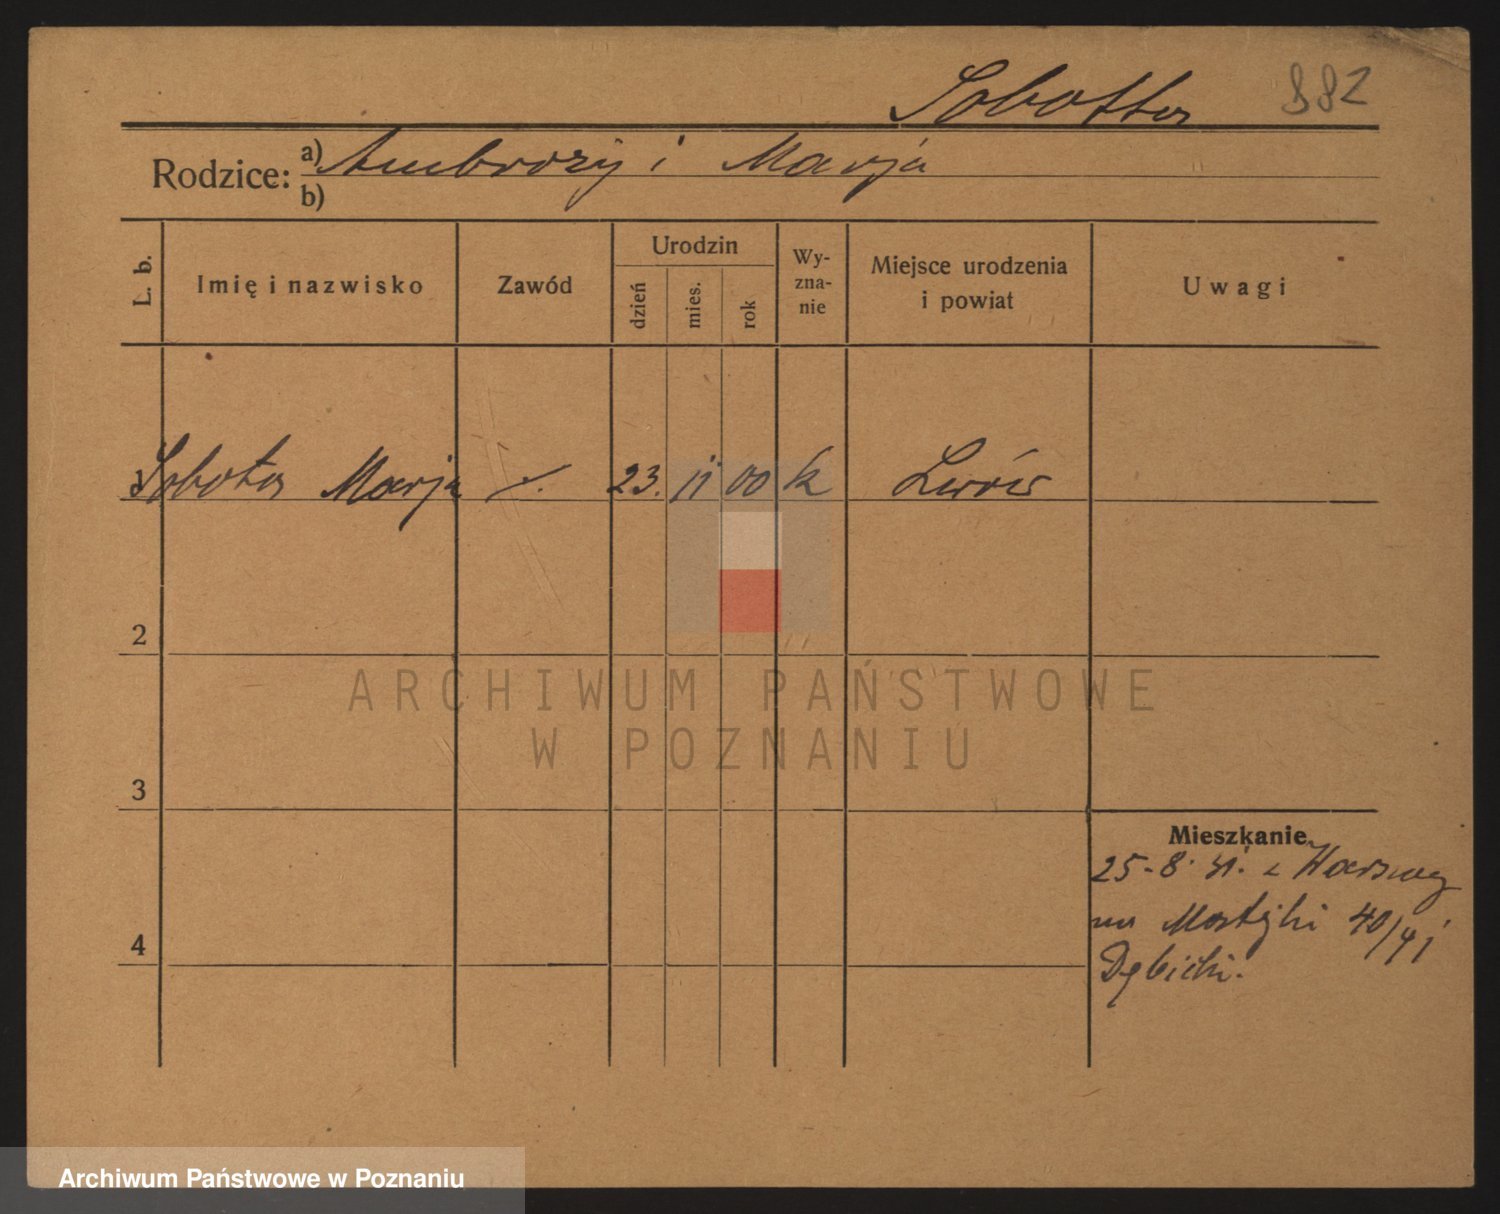 Sobotta 882
Rodzice: a) Ambroży i Marja
b)
L. b. Imię i nazwisko Zawód Urodzin dzień mies. rok Wy-zna-nie Miejsce urodzenia i powiat Uwagi
Sobota Marja 23. 11 00 k Lwów
2
3
Mieszkanie
25-8. 31. z Warszawy
na Mostejki 40/41
4
Dębicki.
ARCHIWUM PAŃSTWOWE
W POZNANIU
Archiwum Państwowe w Poznaniu